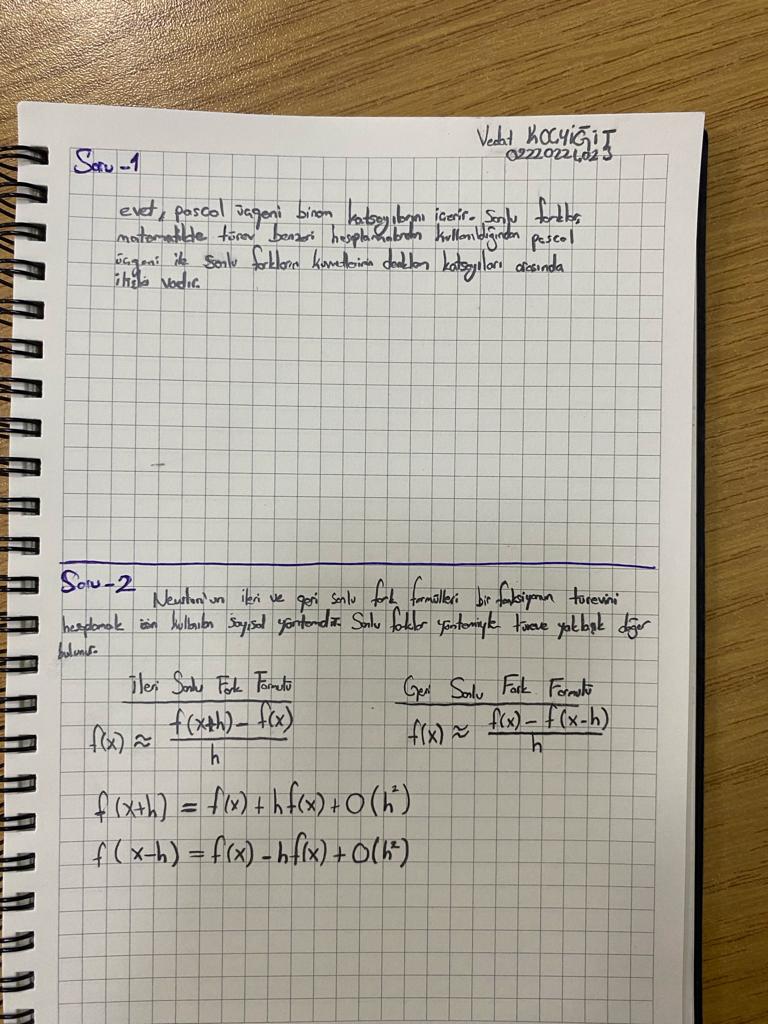 Vedat KOÇYİĞİT
02220224023
Soru-1
evet, pascal üçgeni binom katsayılarını içerir. Sonlu farklar,
matematikte türev benzeri hesaplamalarda kullanıldığından pascal
üçgeni ile sonlu farkların kuvvetlerinin katsayıları arasında
ilişki vardır.
Soru-2 Newton'un ileri ve geri sonlu fark formülleri bir fonksiyonun türevini
hesplamak için kullanılan sayısal yöntemdir. Sonlu farklar yöntemiyle türeve yaklaşık değer
bulunur.
İleri Sonlu Fark Formülü
Geri Sonlu Fark Formülü
f(x) ≈ f(x+h) - f(x) / h
f(x) ≈ f(x) - f(x-h) / h
f(x+h) = f(x) + hf(x) + O(h²)
f(x-h) = f(x) - hf(x) + O(h²)